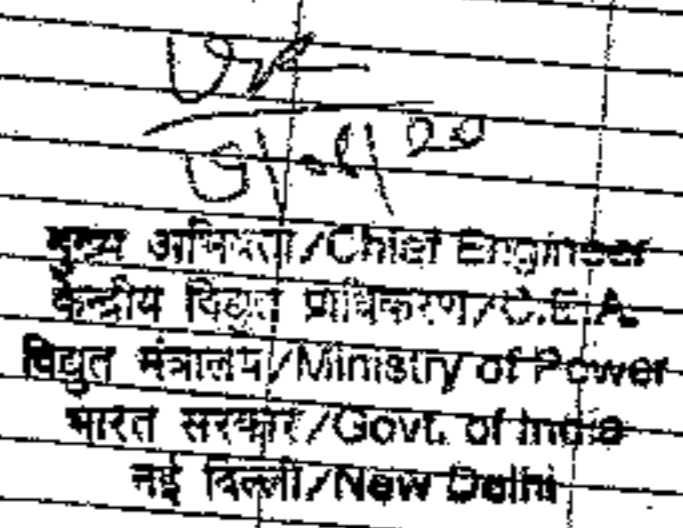 मुख्य अभियंता/Chief Engineer
केन्द्रीय विद्युत प्राधिकरण/C.E.A.
विद्युत मंत्रालय/Ministry of Power
भारत सरकार/Govt. of India
नई दिल्ली/New Delhi